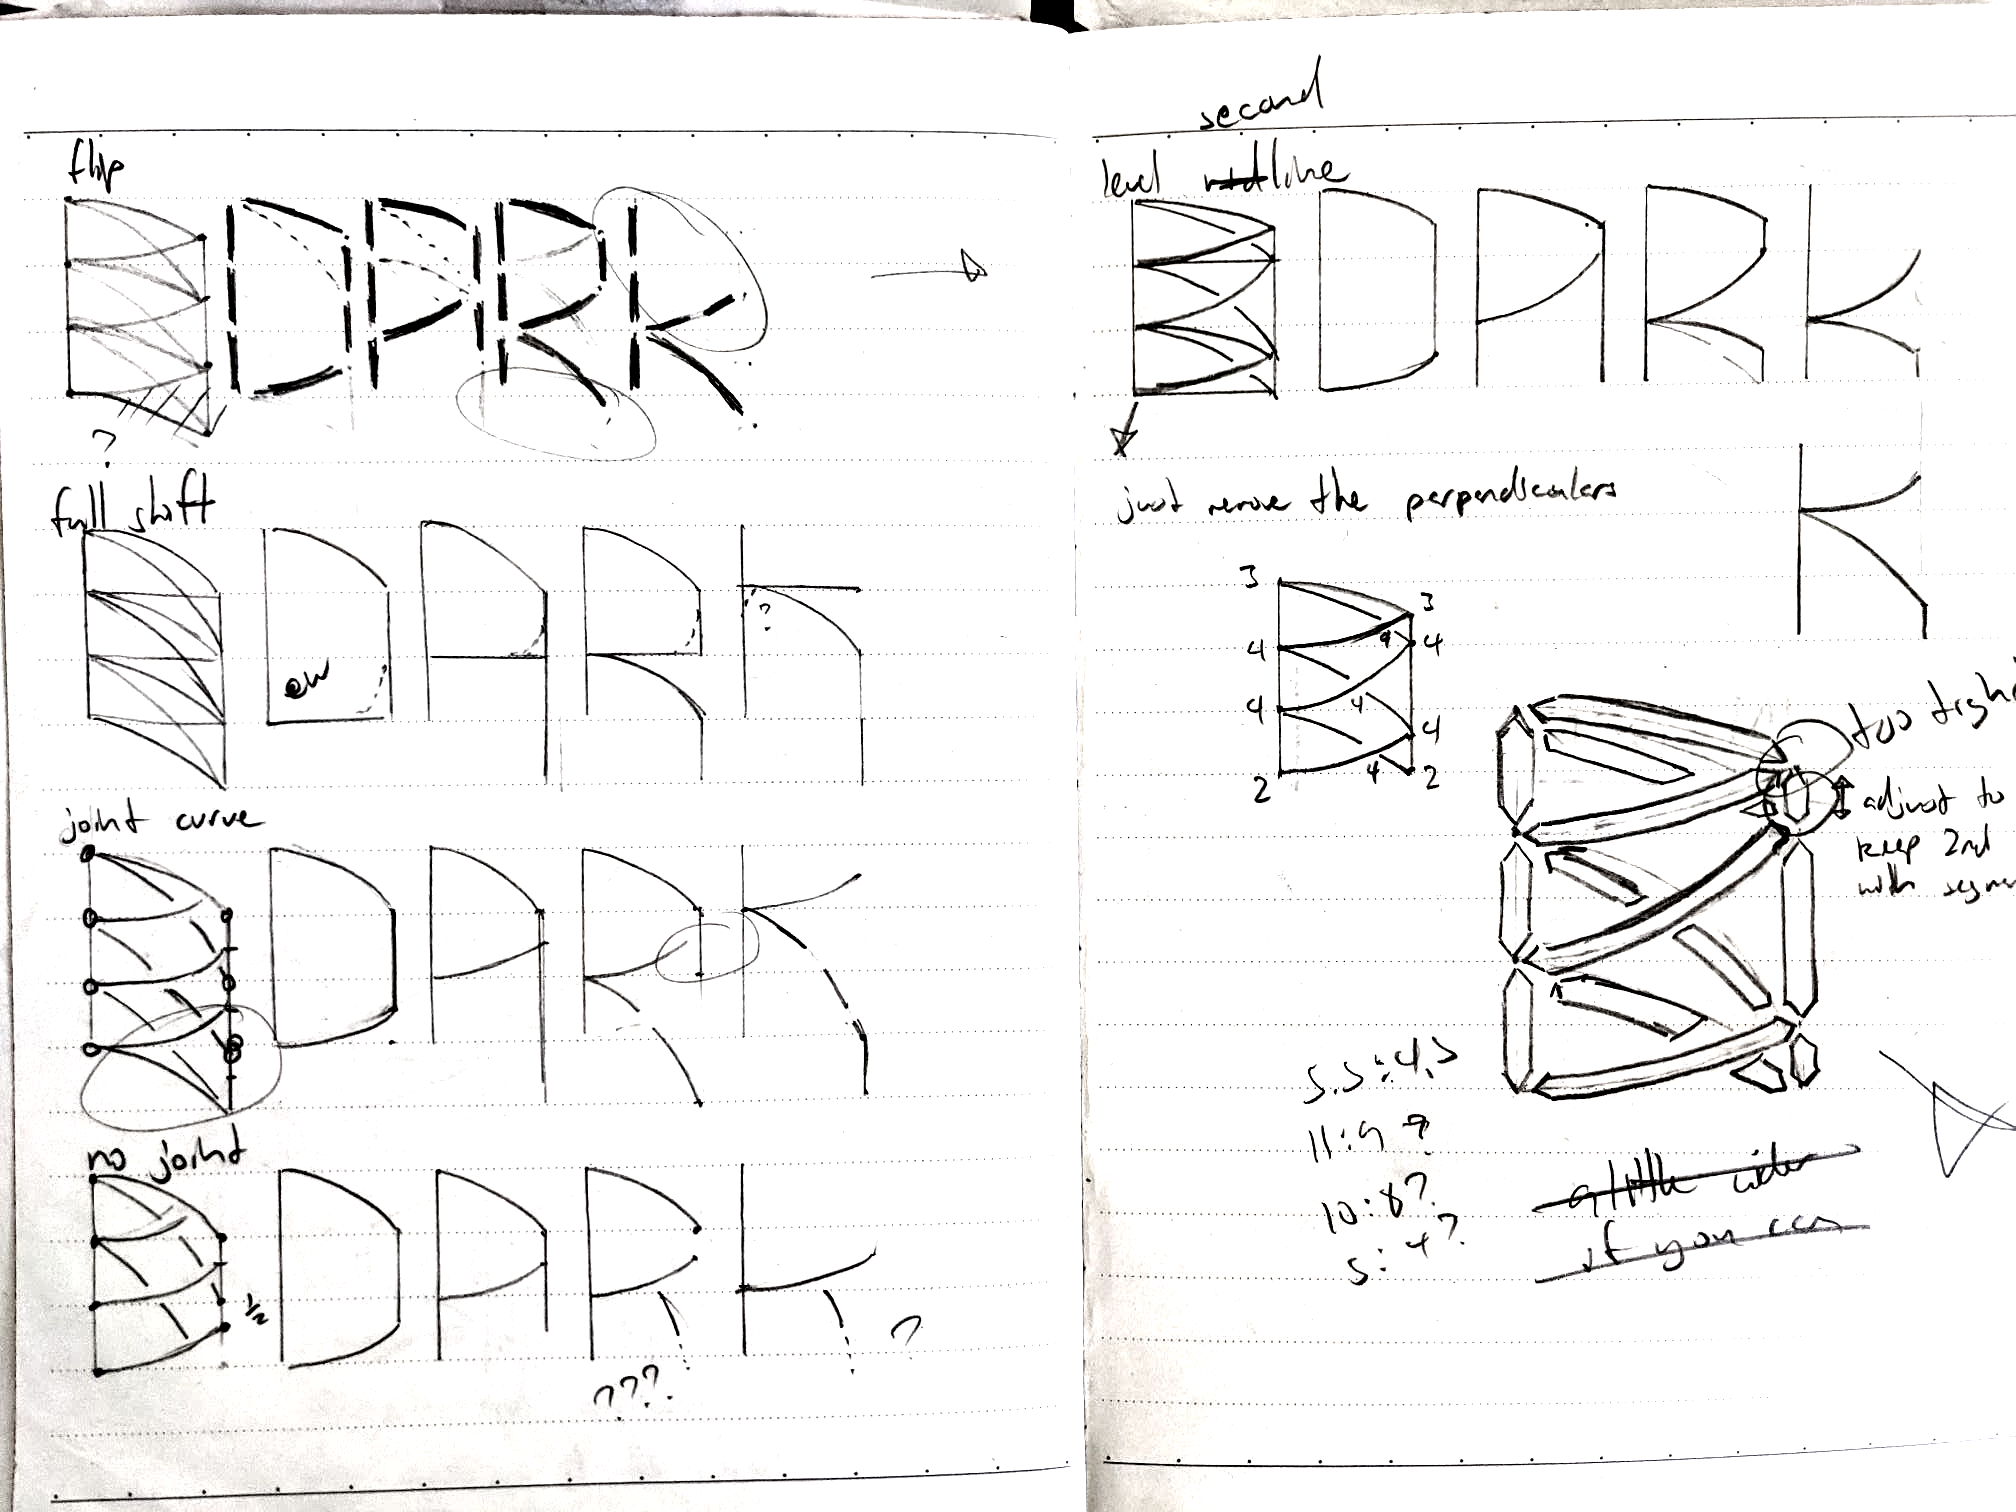 flip
?
full shift
ew
?
joint curve
no joint
1/2
???
?
second
level midline
just remove the perpendiculars
3
3
4
4
4
4
4
4
2
4
2
adjust to
keep 2nd
with
5.5:4.5
11:9
10:8?
5:4?
a little wider
if you can
too
D P R K
D P R K
D P R K
D P R K
D P R K
K